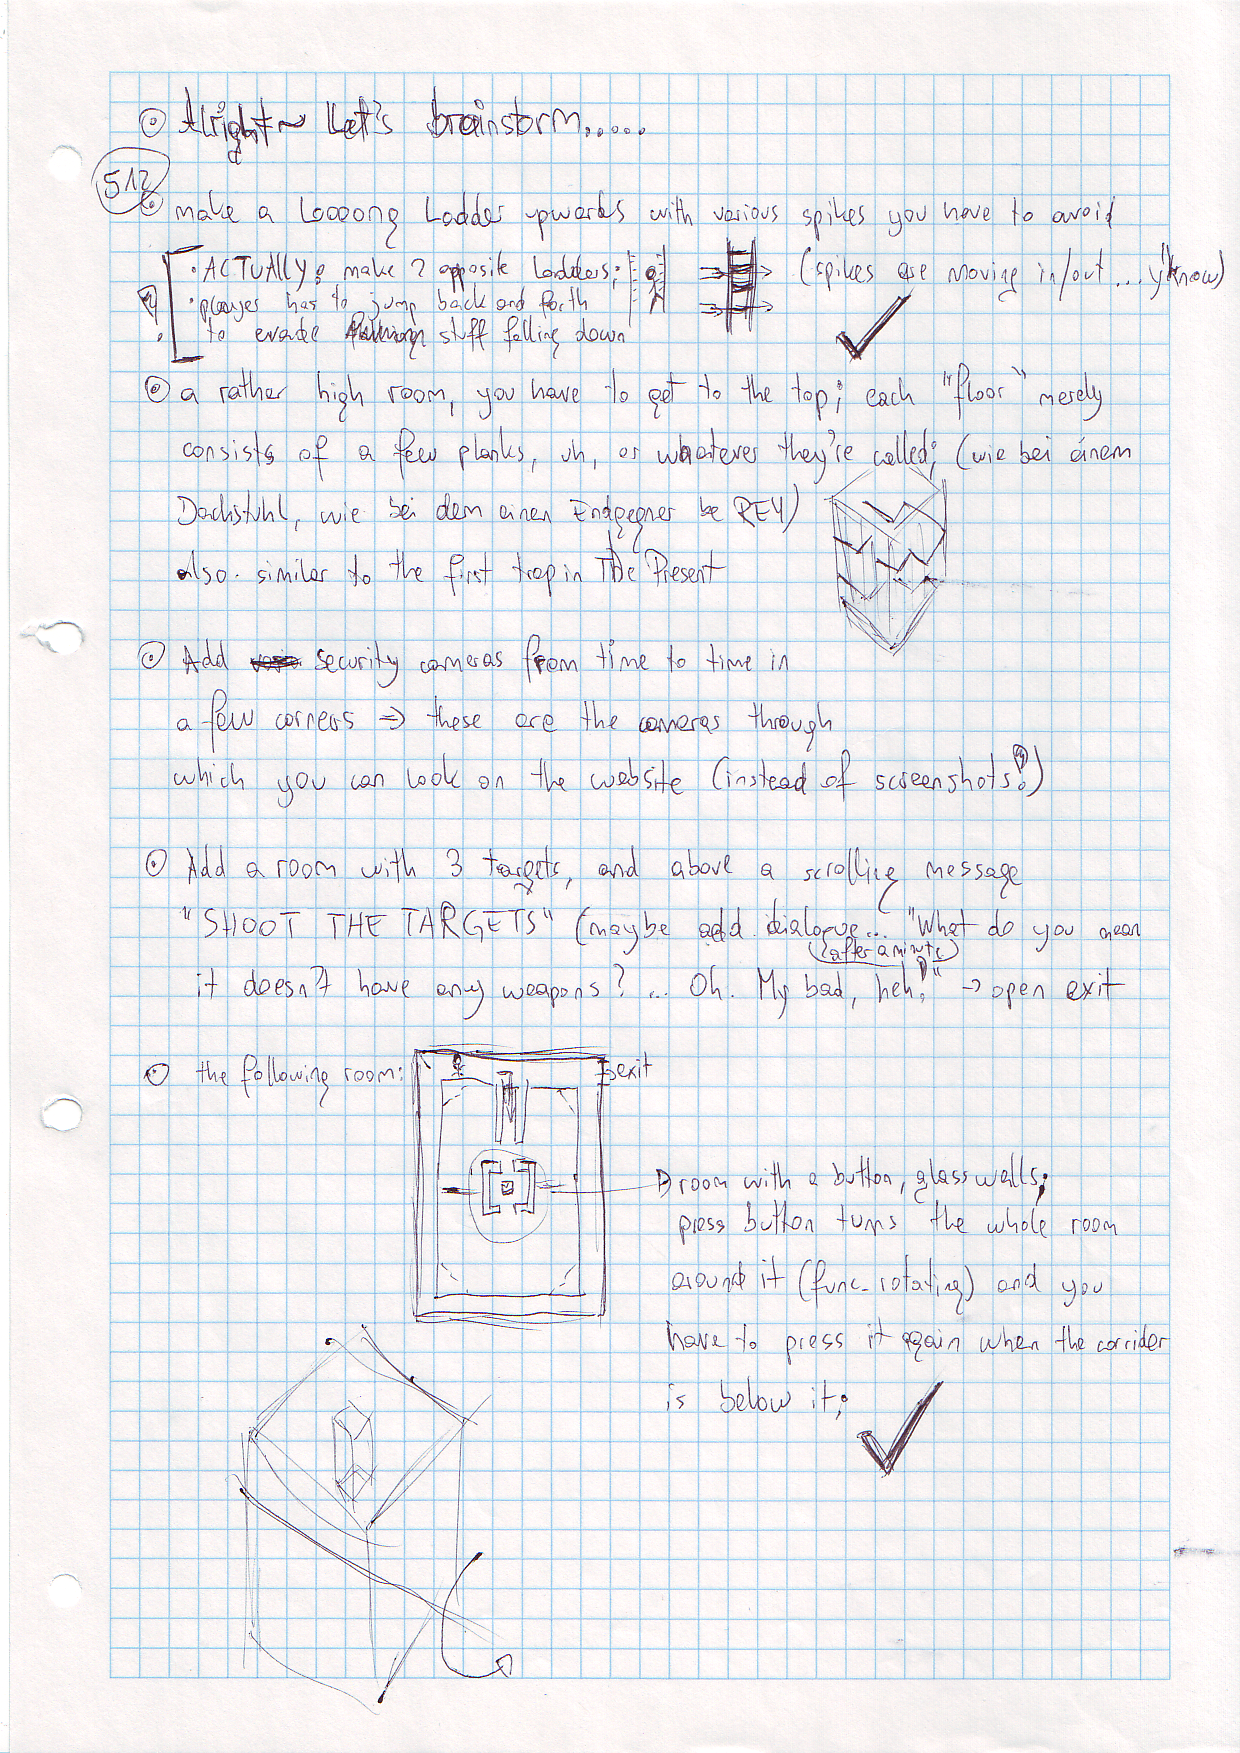 Alright~ Let's brainstorm.....
512
make a Loooong Ladder upwards with various spikes you have to avoid
(spikes are moving in/out... y'know)
• ACTUALLY: make 2 opposite ladders;
• player has to jump back and forth
to evade stuff falling down
a rather high room, you have to get to the top; each "floor" merely
consists of a few planks, uh, or whatever they're called; (wie bei einem
Dachstuhl, wie bei dem einen Endgegner be RE4)
also similar to the first trap in The Present
Add security cameras from time to time in
a few corners => these are the cameras through
which you can look on the website (instead of screenshots!)
Add a room with 3 targets, and above a scrolling message
"SHOOT THE TARGETS" (maybe add dialogue... "What do you mean
(after a minute)
it doesn't have any weapons? ... Oh. My bad, heh!" -> open exit
the following room:
exit
room with a button, glass walls;
press button turns the whole room
around it (func_rotating) and you
have to press it again when the corrider
is below it;